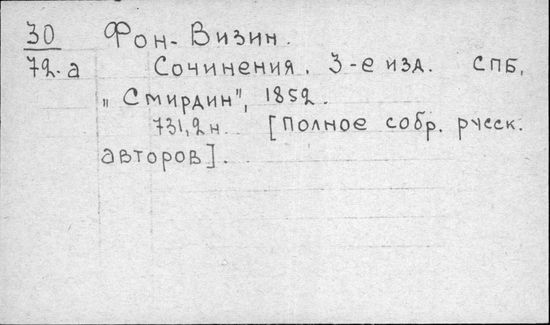 30 Фон-Визин.
72.а Сочинения. 3-е изд. СПБ,
„Смирдин", 1852.
731,2 н. [Полное собр. русск.
авторов].